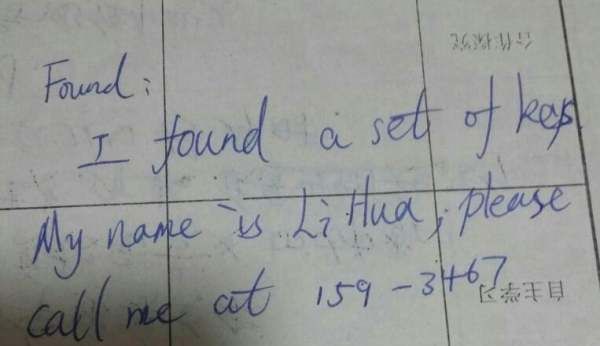 Found:
I found a set of keys.
My name is Li Hua, please
call me at 159-3467
合作探究
自主学习